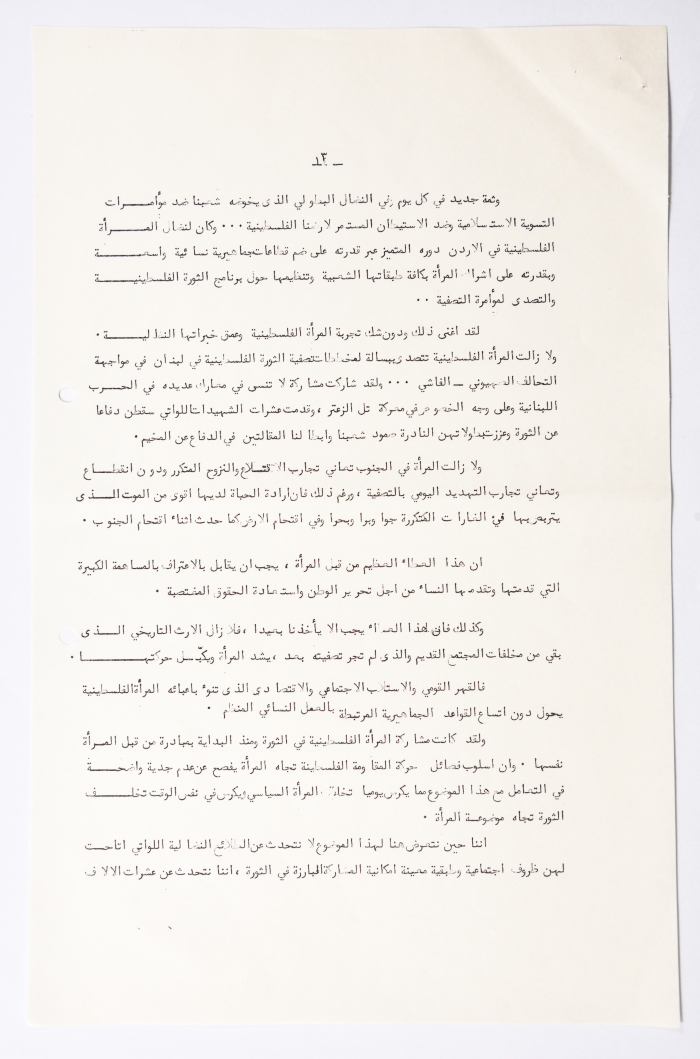 _ ١٣
وثمة جديد في كل يوم في النضال البطولي الذى يخوضه شعبنا ضد مؤامرات
التسوية الاستسلامية وضد الاستيطان المستمر لارضنا الفلسطينية ٠٠٠ وكان لنضال المرأة
الفلسطينية في الاردن دوره المتميز عبر قدرته على ضم قطاعات جماهيرية نسائية واسعة
وبقدرته على اشراك المرأة بكافة طبقاتها الشعبية وتنظيمها حول برنامج الثورة الفلسطينية
والتصدى لمؤامرة التصفية ٠٠
لقد اغنى ذلك ودون شك تجربة المرأة الفلسطينية وعمق خبراتها النضالية ٠
ولا زالت المرأة الفلسطينية تتصدى ببسالة لمخططات تصفية الثورة الفلسطينية في لبنان في مواجهة
التحالف الصهيوني _ الفاشي ٠٠٠ ولقد شاركت مشاركة لا تنسى في معارك عديده في الحرب
اللبنانية وعلى وجه الخصوص في معركة تل الزعتر ، وقدمت عشرات الشهيدات اللواتي سقطن دفاعا
عن الثورة وعززت بطولاتهن النادرة صمود شعبنا وابطالنا المقاتلين في الدفاع عن المخيم ٠
ولا زالت المرأة في الجنوب تعاني تجارب الاقتلاع والنزوح المتكرر ودون انقطاع
وتعاني تجارب التهديد اليومي بالتصفية ، ورغم ذلك فان ارادة الحياة لديها اقوى من الموت الذى
يتربص بها في الغارات المتكررة جوا وبرا وبحرا وفي اقتحام الارض كما حدث اثناء اقتحام الجنوب ٠
ان هذا العطاء العظيم من قبل المرأة ، يجب ان يقابل بالاعتراف بالمساهمة الكبيرة
التي قدمتها وتقدمها النساء من اجل تحرير الوطن واستعادة الحقوق المغتصبة ٠
وكذلك فان لهذا العطاء يجب الا يأخذنا بعيدا ، فلا زال الارث التاريخي الذى
بقي من مخلفات المجتمع القديم والذى لم تجر تصفيته بعد ، يشد المرأة ويكبّل حركتها ٠
فالقهر القومي والاستلاب الاجتماعي والاقتصادى الذى تنوء باعبائه المرأة الفلسطينية
يحول دون اتساع القواعد الجماهيرية المرتبطة بالعمل النسائي المنظم ٠
ولقد كانت مشاركة المرأة الفلسطينية في الثورة ومنذ البداية بمبادرة من قبل المرأة
نفسها ٠ وان اسلوب فصائل حركة المقاومة الفلسطينة تجاه المرأة يفصح عن عدم جدية واضحة
في التعامل مع هذا الموضوع مما يكرس يوميا تخلف المرأة السياسي ويكرس في نفس الوقت تخلف
الثورة تجاه موضوعة المرأة ٠
اننا حين نتعرض هنا لهذا الموضوع لا نتحدث عن الطلائع النضالية اللواتي اتاحت
لهن ظروف اجتماعية وطبقية معينة امكانية المشاركة البارزة في الثورة ، اننا نتحدث عن عشرات الالاف